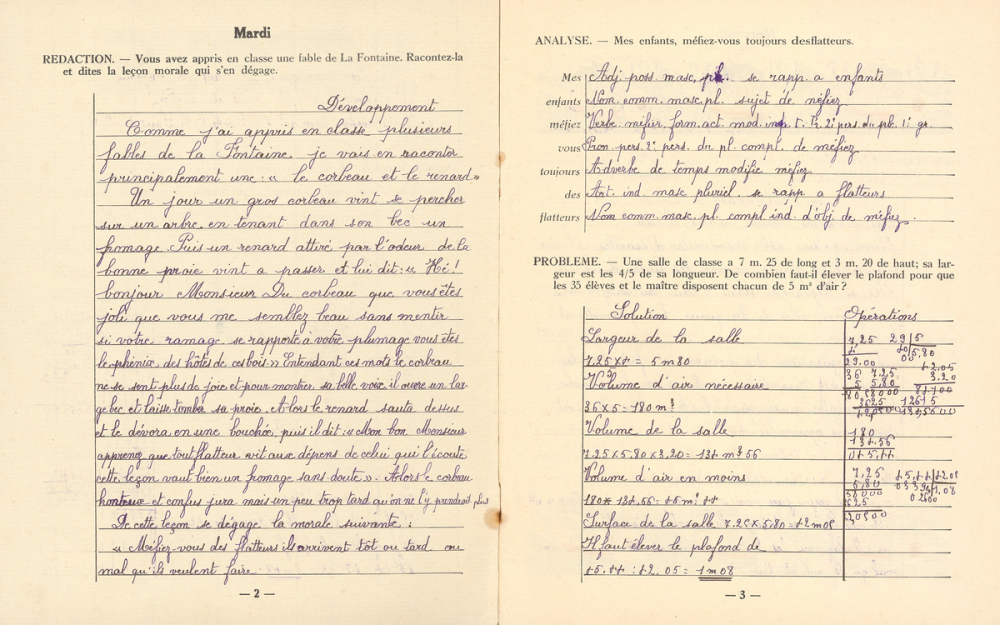 Mardi
REDACTION. — Vous avez appris en classe une fable de La Fontaine. Racontez-la
et dites la leçon morale qui s'en dégage.
Développement
Comme j'ai appris en classe plusieurs
fables de la Fontaine. je vais en raconter
principalement une : « le corbeau et le renard »
Un jour un gros corbeau vint se percher
sur un arbre. en tenant dans son bec un
fromage. Puis un renard attiré par l'odeur de la
bonne proie vint a passer et lui dit : « Hé !
bonjour Monsieur Du corbeau que vous êtes
joli que vous me semblez beau sans mentir
si vôtre ramage se rapporte à votre plumage vous êtes
le phénix des hôtes de ces bois » Entendant ces mots le corbeau
ne se sent plus de joie et pour montrer sa belle voix, il ouvre un lar-
ge bec et laisse tomba sa proie. Alors le renard sauta dessus
et le dévora en une bouchée, puis il dit : « Mon bon Monsieur
apprenez que tout flatteur vit aux dépens de celui qui l'écoute
cette leçon vaut bien un fromage sans doute ». Alors le corbeau
honteux et confus jura mais un peu trop tard qu'on ne l'y prendrait plus
De cette leçon se dégage la morale suivante :
« Méfiez-vous des flatteurs ils arrivent tôt ou tard au
mal qu'ils veulent faire
— 2 —
ANALYSE. — Mes enfants, méfiez-vous toujours des flatteurs.
Mes Adj. poss. masc. pl. se rapp. a enfants
enfants Nom. comm. masc. pl. sujet de méfiez
méfiez Verbe méfier, form. act. mod. imp. t. Pr. 2e pers. du pl. 1er gr.
vous Pron pers. 2e pers. du pl. compl. de méfiez
toujours Adverbe de temps modifie méfiez
des Art. ind masc pluriel. se rapp a flatteurs
flatteurs Nom comm. masc. pl. compl ind. d'obj de méfiez.
PROBLEME. — Une salle de classe a 7 m. 25 de long et 3 m. 20 de haut; sa lar-
geur est les 4/5 de sa longueur. De combien faut-il élever le plafond pour que
les 35 élèves et le maître disposent chacun de 5 m³ d'air ?
Solution Opérations
Largeur de la salle
7,25 x 4 = 5 m 80
Volume d'air nécessaire
36 x 5 = 180 m³
Volume de la salle
7.25 x 5,80 x 3,20 = 134 m³ 56
Volume d'air en moins
180 - 134.56 : 45 m³ 44
Surface de la salle 7.25 x 5,80 = 42 m 05
Il faut élever le plafond de
45.44 : 42.05 = 1 m 08
7,25
29,00
5,80
180
134.56
045,44
— 3 —